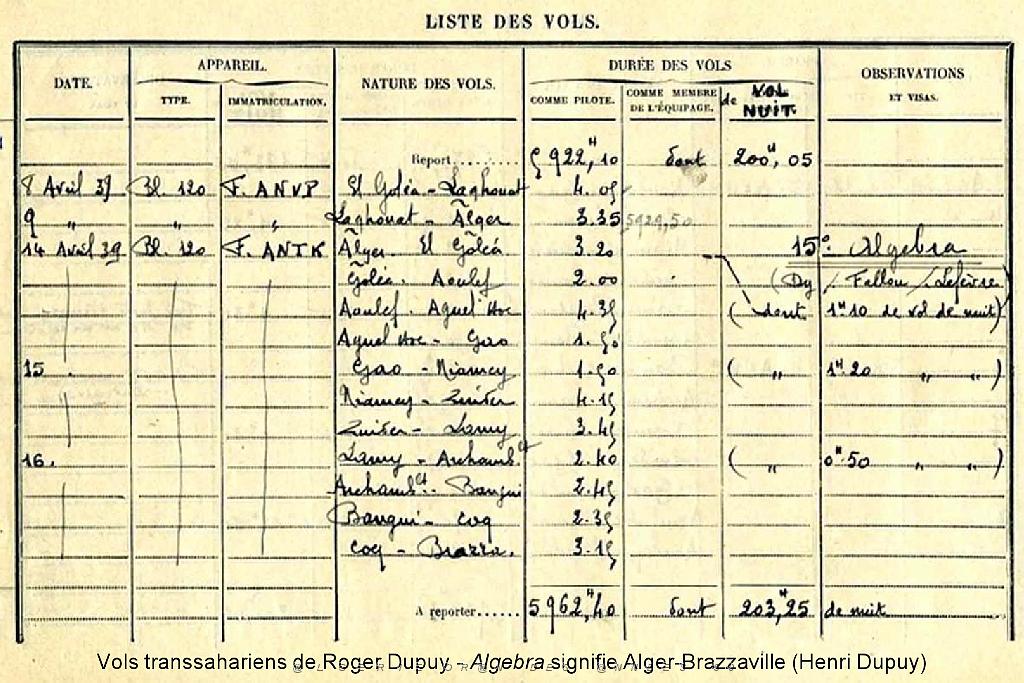 LISTE DES VOLS.
DATE. APPAREIL. NATURE DES VOLS. DURÉE DES VOLS OBSERVATIONS ET VISAS.
TYPE. IMMATRICULATION. COMME PILOTE. COMME MEMBRE DE L'ÉQUIPAGE. de VOL NUIT.
Report......... 5922,H10 dont 200H,05
8 Avril 39 Bl. 120 F. ANVP El Goléa - Laghouat 4.05
9 " " " Laghouat - Alger 3.35 5929,50
14 Avril 39 Bl. 120 F. ANTK Alger. El Goléa 3.20 15° Algebra
Goléa. Aoulef 2.00 (Dy / Fallou / Lefèvre)
Aoulef. Aguel Hoc 4.35 (dont 1H10 de vol de nuit)
Aguel Hoc - Gao 1.50
15 . Gao - Niamey 1.50 ( " 1H.20 " " )
Niamey - Zinder 4.15
Zinder - Lamy 3.45
16. Lamy - Archamb.lt 2.40 ( " 0H.50 " " )
Archamb.lt - Bangui 2.45
Bangui - Coq 2.35
Coq - Brazza. 3.15
A reporter...... 5962,H40 dont 203,H25 de nuit
Vols transsahariens de Roger Dupuy - Algebra signifie Alger-Brazzaville (Henri Dupuy)